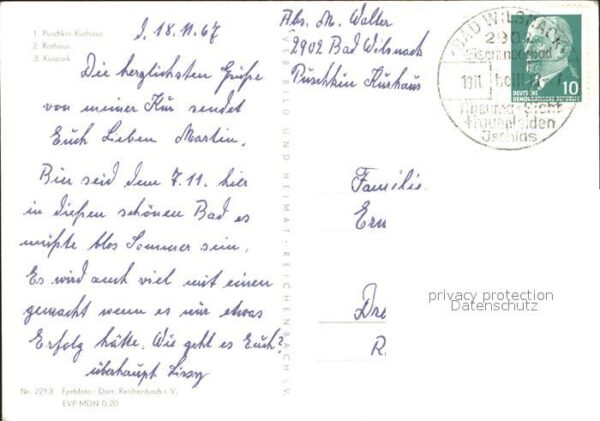 1. Puschkin-Kurhaus
2. Rathaus
3. Kurpark
d. 18.11.67
Die herzlichsten Grüße
von meiner Kur sendet
Euch Lieben Martin.
Bin seid dem 7.11. hier
in dießen schönen Bad es
müßte blos Sommer sein.
Es wird auch viel mit einen
gemacht wenn es nur etwas
Erfolg hätte. Wie geht es Euch?
überhaupt Lissy
Nr. 2213 Farbfoto: Darr, Reichenbach i. V.
EVP MDN 0,20
BILD UND HEIMAT · REICHENBACH I. V.
Abs. M. Walter
2902 Bad Wilsnack
Puschkin Kurhaus
BAD WILSNACK
2902
Eisenmoorbad
Rheuma Gicht
Frauenleiden
Ischias
10
DEUTSCHE
DEMOKRATISCHE REPUBLIK
Familie
Ern
Dre
R.
privacy protection
Datenschutz